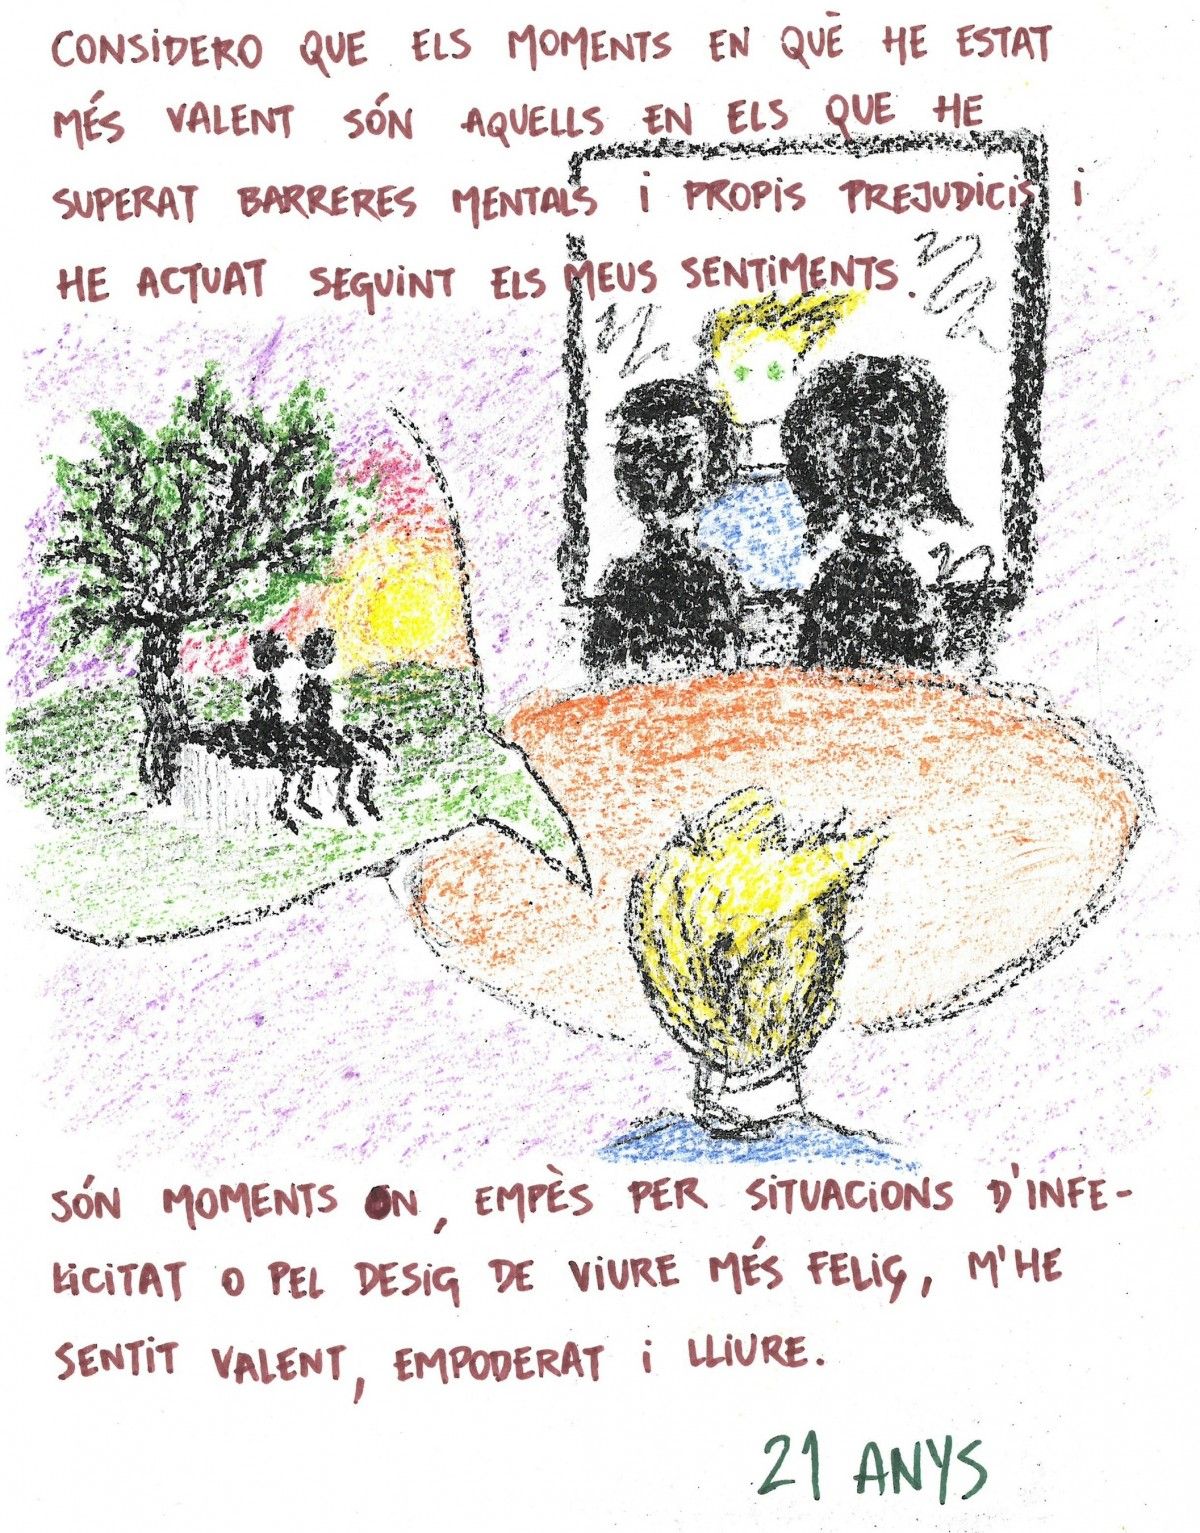 CONSIDERO QUE ELS MOMENTS EN QUÈ HE ESTAT
MÉS VALENT SÓN AQUELLS EN ELS QUE HE
SUPERAT BARRERES MENTALS I PROPIS PREJUDICIS I
HE ACTUAT SEGUINT ELS MEUS SENTIMENTS.
SÓN MOMENTS ON, EMPÈS PER SITUACIONS D'INFE-
LICITAT O PEL DESIG DE VIURE MÉS FELIÇ, M'HE
SENTIT VALENT, EMPODERAT I LLIURE.
21 ANYS